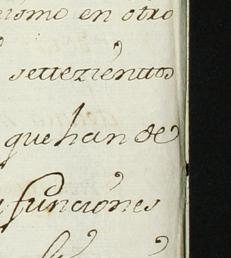 mismo en otro
settezientos
que han de
funciones